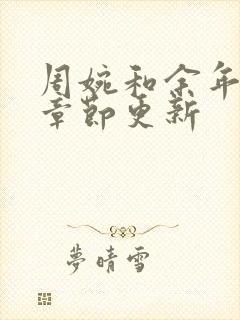 周婉和余年
章節更新
夢晴雪